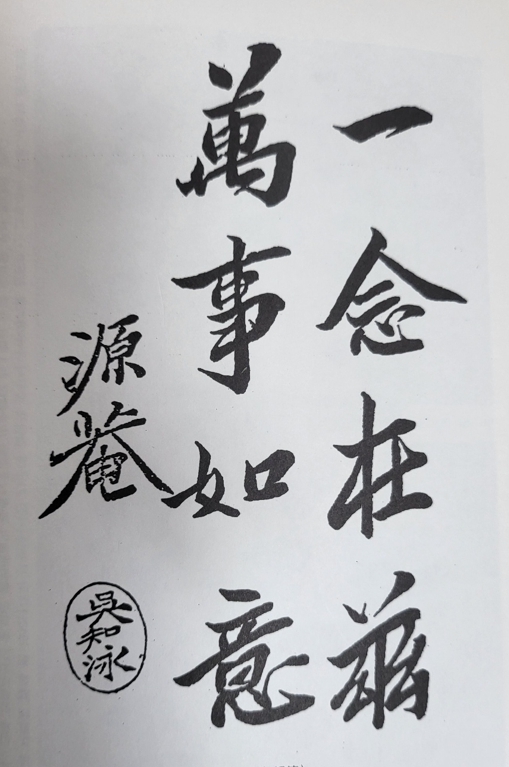 一念在茲
萬事如意
源菴
吳知泳